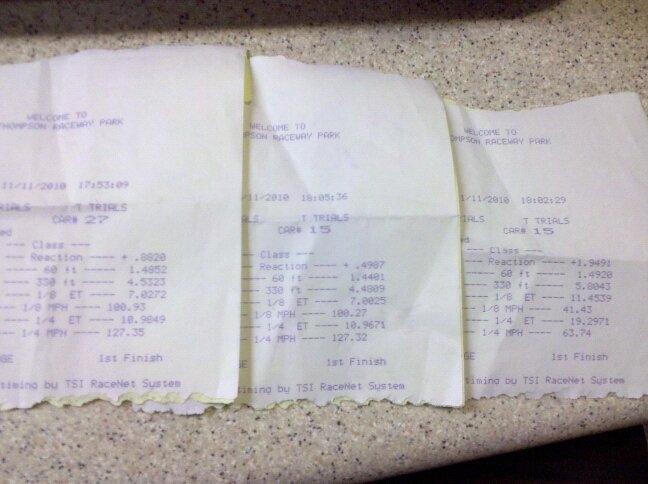 WELCOME TO
THOMPSON RACEWAY PARK
11/11/2010 17:53:09
RIALS T TRIALS
CAR# 27
ed
--- Class ---
--- Reaction ---- + .8820
----- 60 ft ---- 1.4852
---- 330 ft ---- 4.5323
---- 1/8 ET ---- 7.0272
- 1/8 MPH ---- 100.93
---- 1/4 ET ---- 10.9849
- 1/4 MPH ---- 127.35
GE 1st Finish
timing by TSI RaceNet System
WELCOME TO
PSON RACEWAY PARK
/11/2010 18:05:36
ALS T TRIALS
CAR# 15
--- Class ---
Reaction ---- + .4987
---- 60 ft ---- 1.4401
--- 330 ft ---- 4.4809
--- 1/8 ET ---- 7.0025
1/8 MPH ---- 100.27
--- 1/4 ET ---- 10.9671
1/4 MPH ---- 127.32
GE 1st Finish
timing by TSI RaceNet System
WELCOME TO
OMPSON RACEWAY PARK
1/11/2010 18:02:29
IALS T TRIALS
CAR# 15
ed
--- Class ---
-- Reaction ---- +1.9491
----- 60 ft ---- 1.4920
---- 330 ft ---- 5.8043
---- 1/8 ET ---- 11.4539
- 1/8 MPH ---- 41.43
---- 1/4 ET ---- 19.2971
- 1/4 MPH ---- 63.74
GE 1st Finish
timing by TSI RaceNet System